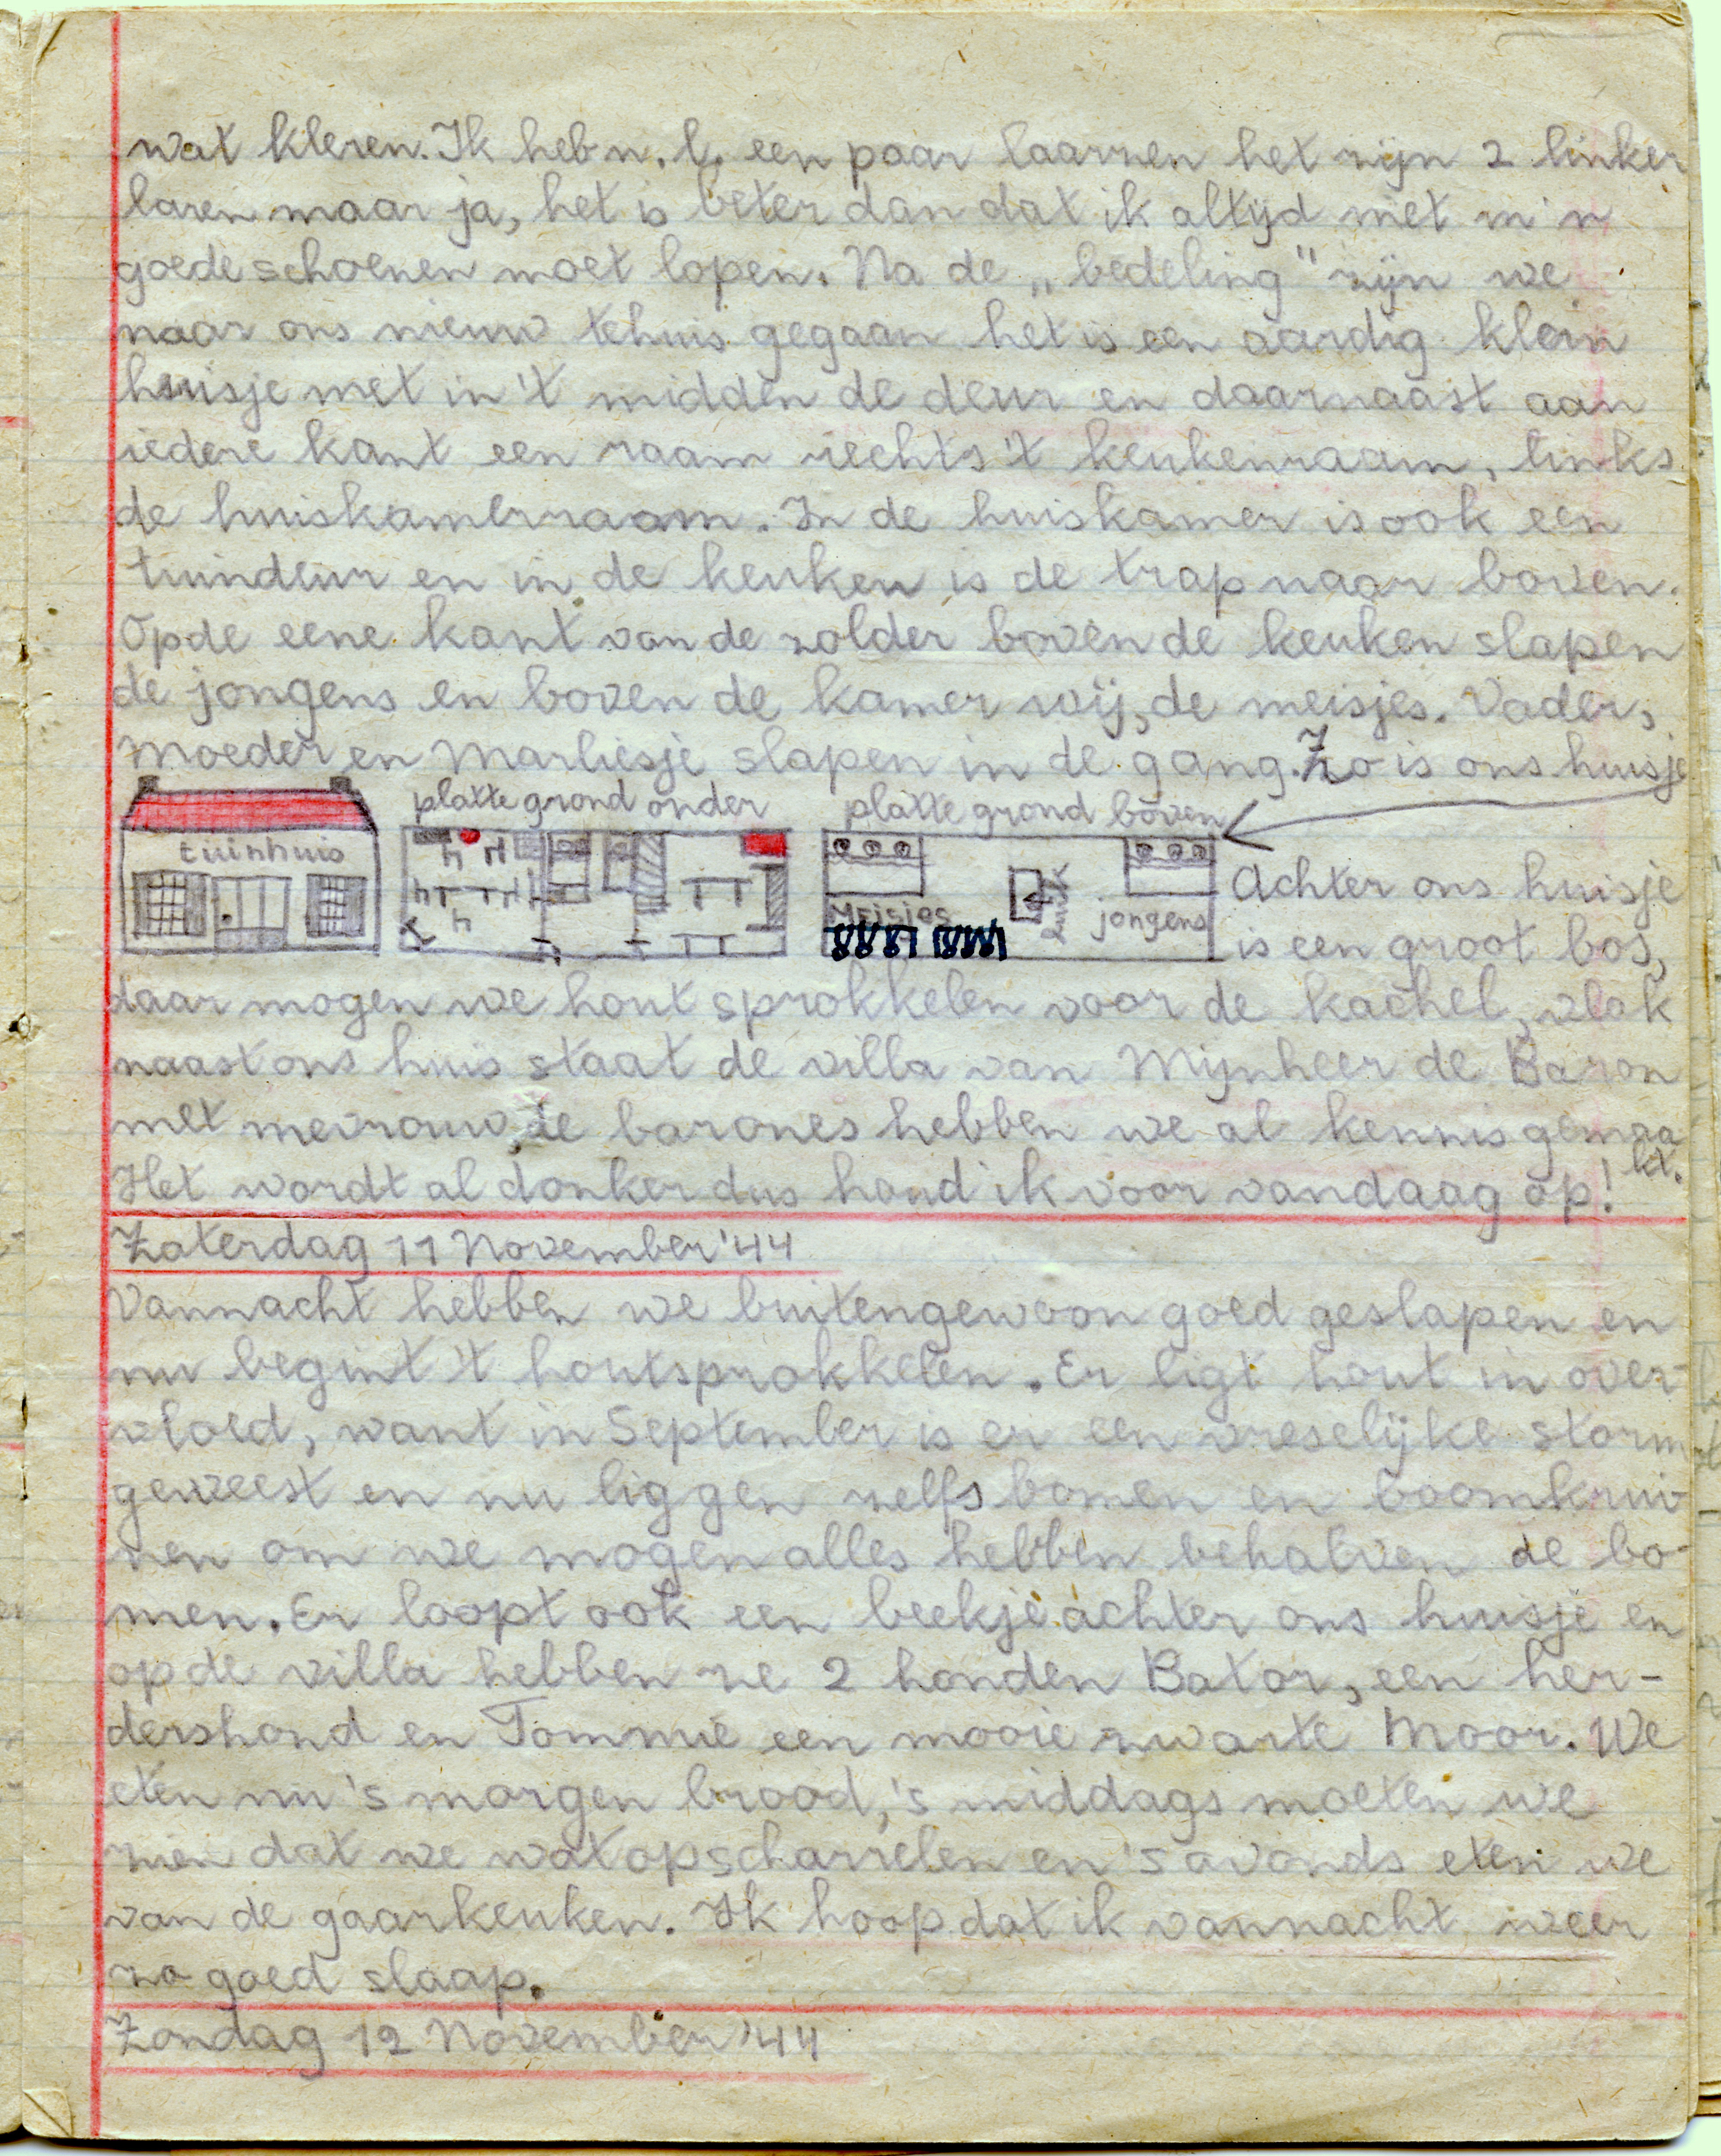 wat kleren. Ik heb n.l. een paar laarzen het zijn 2 linker
laren maar ja, het is beter dan dat ik altijd met m'n
goede schoenen moet lopen. Na de „bedeling" zijn we
naar ons nieuw tehuis gegaan het is een aardig klein
huisje met in 't midden de deur en daarnaast aan
iedere kant een raam rechts 't keukenraam, links
de huiskamerraam. In de huiskamer is ook een
tuindeur en in de keuken is de trap naar boven.
Op de eene kant van de zolder boven de keuken slapen
de jongens en boven de kamer wij, de meisjes. Vader,
Moeder en Marliesje slapen in de gang. Zo is ons huisje
platte grond onder
platte grond boven
tuinhuis
Meisjes
luik
jongens
Achter ons huisje
is een groot bos,
daar mogen we hout sprokkelen voor de kachel, vlak
naast ons huis staat de villa van Mijnheer de Baron
met mevrouw, de barones hebben we al kennis gemaa
kt.
Het wordt al donker dus houd ik voor vandaag op!
Zaterdag 11 November '44
Vannacht hebben we buitengewoon goed geslapen en
nu begint 't houtsprokkelen. Er ligt hout in over-
vloed, want in September is er een vreselijke storm
geweest en nu liggen zelfs bomen en boomkrui-
nen om we mogen alles hebben behalven de bo-
men. Er loopt ook een beekje achter ons huisje en
op de villa hebben ze 2 honden Bator, een her-
dershond en Tommie een mooie zwarte Moor. We
eten nu 's morgen brood, 's middags moeten we
zien dat we wat opscharrelen en 's avonds eten we
van de gaarkeuken. Ik hoop dat ik vannacht weer
zo goed slaap.
Zondag 12 November '44